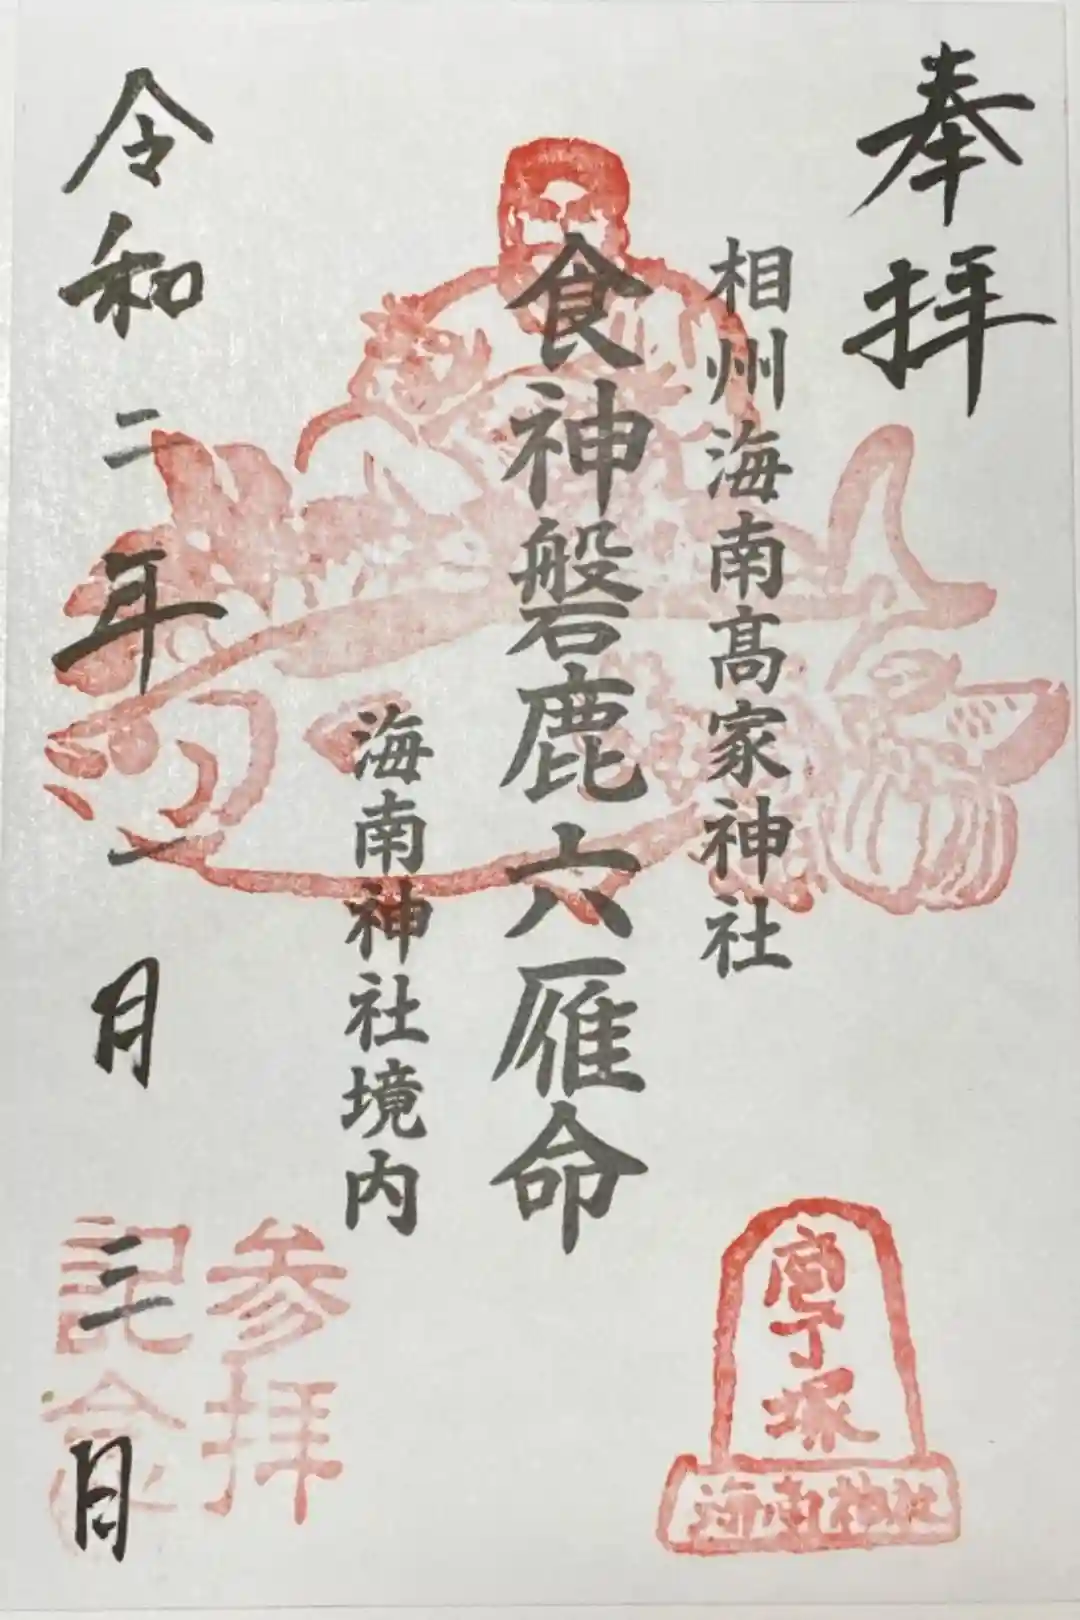 奉拝
相州海南高家神社
食神磐鹿六雁命
海南神社境内
令和二年一月三日
参拝
記念
庖丁塚
海南神社